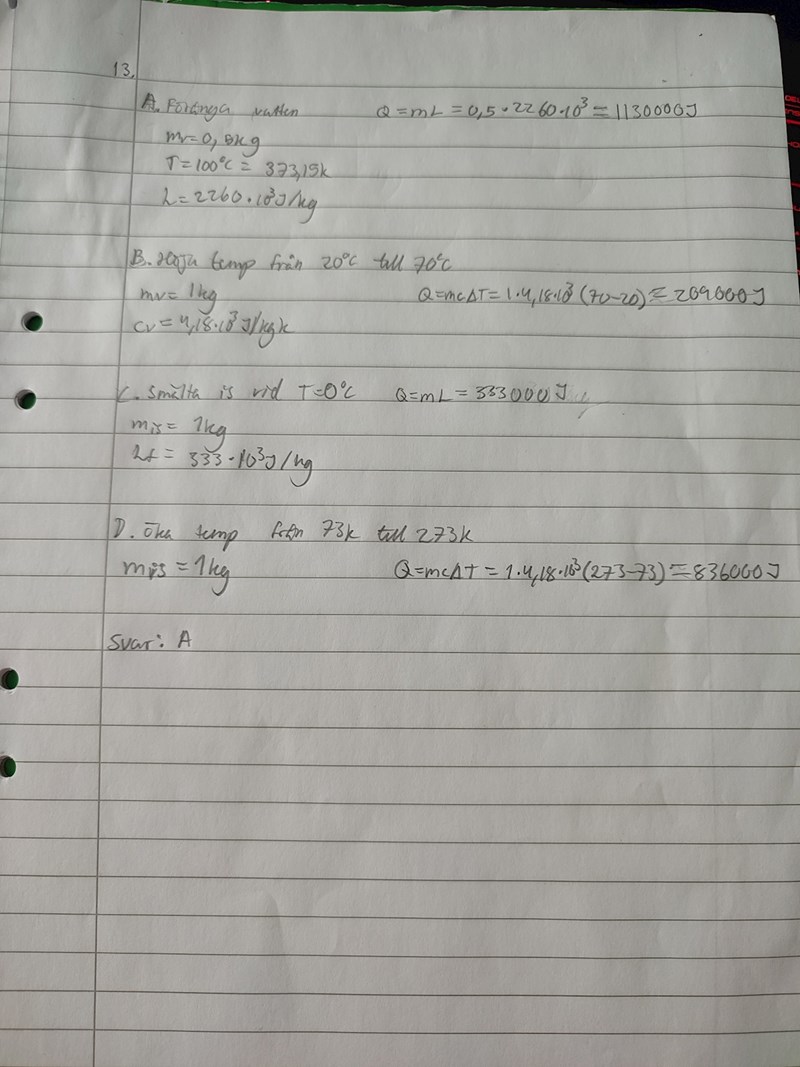 13.
A. Förånga vatten Q=mL=0,5·2260·10³=1130000J
mv=0,5kg
T=100°C= 373,15k
L=2260·10³J/kg
B. Höja temp från 20°C till 70°C
mv=1kg Q=mcΔT=1·4,18·10³(70-20)=209000J
cv=4,18·10³J/kgk
C. Smälta is vid T=0°C Q=mL=333000J
mis= 1kg
Ls= 333·10³J/kg
D. öka temp från 73k till 273k
mis=1kg Q=mcΔT=1·4,18·10³(273-73)=836000J
Svar: A